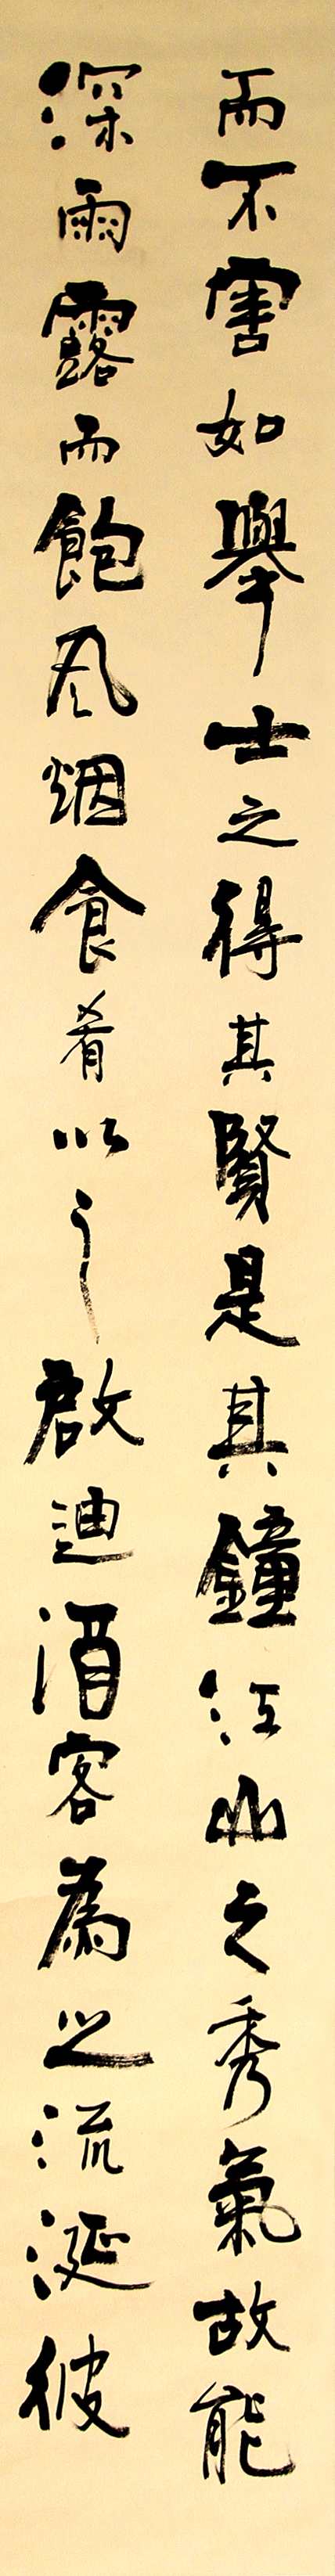 而不害如舉士之得其賢是其鐘江山之秀氣故能
深雨露而飽风烟食肴以之啟迪酒客為之流涎彼